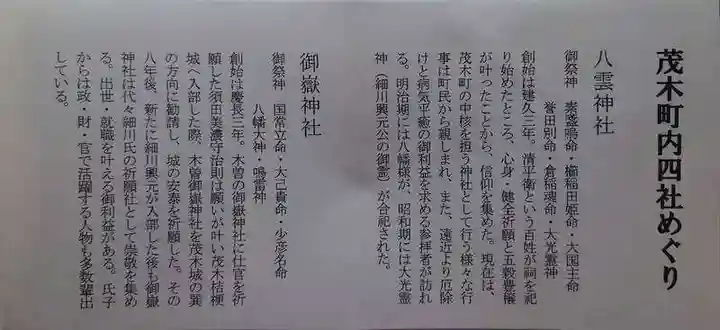 茂木町内四社めぐり
八雲神社
御祭神　素盞嗚命・櫛稲田姫命・大国主命
誉田別命・倉稲魂命・大光霊神
創始は建久三年。清平衛という百姓が祠を祀
り始めたところ、心身・健全祈願と五穀豊穣
が叶ったことから、信仰を集めた。現在は、
茂木町の中核を担う神社として行う様々な行
事は町民から親しまれ、また、遠近より厄除
けと病気平癒の御利益を求める参拝者が訪れ
る。明治期には八幡様が、昭和期には大光霊
神（細川興元公の御霊）が合祀された。
御嶽神社
御祭神　国常立命・大己貴命・少彦名命
八幡大神・鳴雷神
創始は慶長三年。木曽の御嶽神社に仕官を祈
願した須田美濃守治則は願いが叶い茂木桔梗
城へ入部した際、木曽御嶽神社を茂木城の巽
の方向に勧請し、城の安泰を祈願した。その
八年後、新たに細川興元が入部した後も御嶽
神社は代々細川氏の祈願社として崇敬を集め
る。出世・就職を叶える御利益がある。氏子
からは政・財・官で活躍する人物も多数輩出
している。